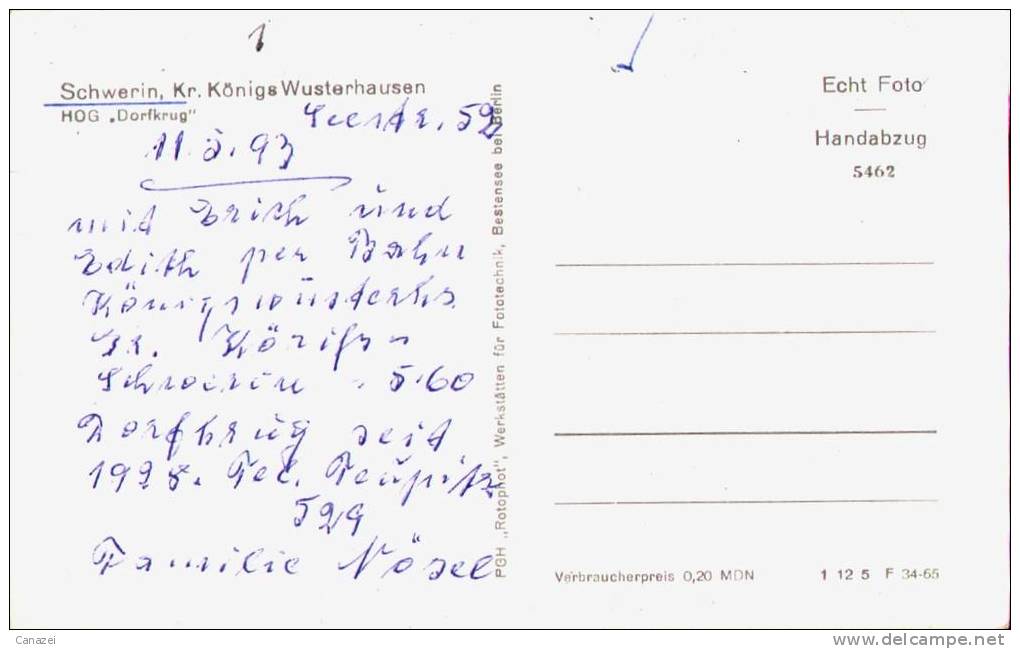 Schwerin, Kr. Königs Wusterhausen
HOG „Dorfkrug"
Seestr. 52
11.5.93
mit Erich und
Edith per Bahn
Königswusterhs.
Gr. Köris
Schwerin 5.60
Dorfkrug seit
1928. Tel. Teupitz
529
Familie Nösel
PGH „Rotophot", Werkstätten für Fototechnik, Bestensee bei Berlin
Echt Foto
Handabzug
5462
Verbraucherpreis 0,20 MDN
1 12 5 F 34-65
Canazei
www.delcampe.net